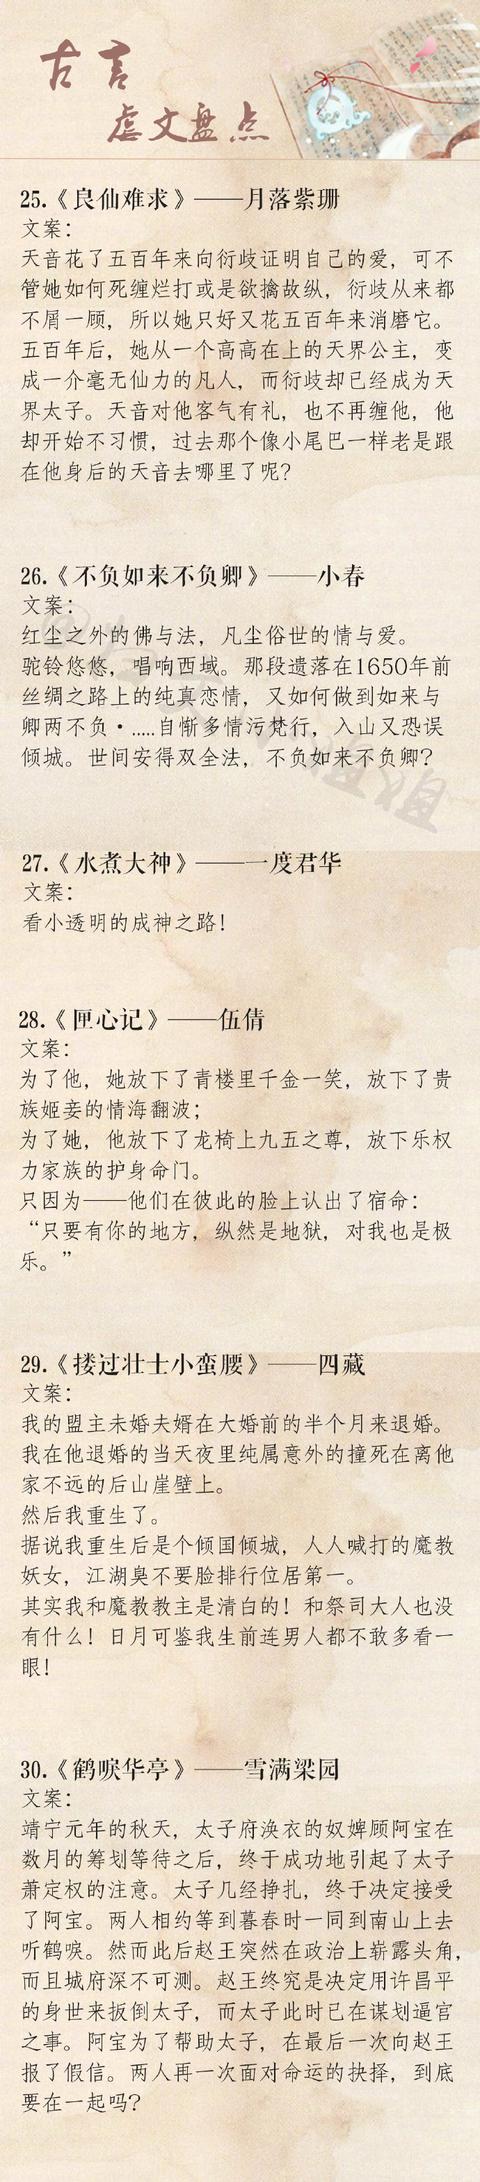 古言
虐文盘点
25.《良仙难求》——月落紫珊
文案：
天音花了五百年来向衍歧证明自己的爱，可不
管她如何死缠烂打或是欲擒故纵，衍歧从来都
不屑一顾，所以她只好又花五百年来消磨它。
五百年后，她从一个高高在上的天界公主，变
成一介毫无仙力的凡人，而衍歧却已经成为天
界太子。天音对他客气有礼，也不再缠他，他
却开始不习惯，过去那个像小尾巴一样老是跟
在他身后的天音去哪里了呢？
26.《不负如来不负卿》——小春
文案：
红尘之外的佛与法，凡尘俗世的情与爱。
驼铃悠悠，唱响西域。那段遗落在1650年前
丝绸之路上的纯真恋情，又如何做到如来与
卿两不负·.....自惭多情污梵行，入山又恐误
倾城。世间安得双全法，不负如来不负卿？
27.《水煮大神》——一度君华
文案：
看小透明的成神之路！
28.《匣心记》——伍倩
文案：
为了他，她放下了青楼里千金一笑，放下了贵
族姬妾的情海翻波；
为了她，他放下了龙椅上九五之尊，放下乐权
力家族的护身命门。
只因为——他们在彼此的脸上认出了宿命：
“只要有你的地方，纵然是地狱，对我也是极
乐。”
29.《搂过壮士小蛮腰》——四藏
文案：
我的盟主未婚夫婿在大婚前的半个月来退婚。
我在他退婚的当天夜里纯属意外的撞死在离他
家不远的后山崖壁上。
然后我重生了。
据说我重生后是个倾国倾城，人人喊打的魔教
妖女，江湖臭不要脸排行位居第一。
其实我和魔教教主是清白的！和祭司大人也没
有什么！日月可鉴我生前连男人都不敢多看一
眼！
30.《鹤唳华亭》——雪满梁园
文案：
靖宁元年的秋天，太子府涣衣的奴婢顾阿宝在
数月的筹划等待之后，终于成功地引起了太子
萧定权的注意。太子几经挣扎，终于决定接受
了阿宝。两人相约等到暮春时一同到南山上去
听鹤唳。然而此后赵王突然在政治上崭露头角，
而且城府深不可测。赵王终究是决定用许昌平
的身世来扳倒太子，而太子此时已在谋划逼宫
之事。阿宝为了帮助太子，在最后一次向赵王
报了假信。两人再一次面对命运的抉择，到底
要在一起吗？